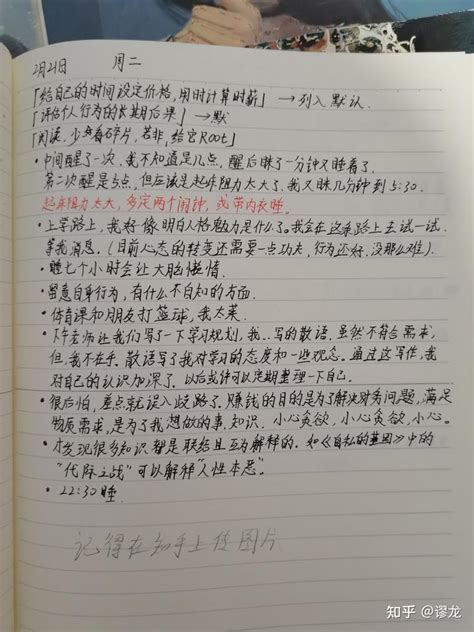 2月21日 周二
「给自己的时间设定价格,用时计算时薪」→列入默认.
「评估个人行为的长期后果」→默
「阅读,少看碎片,若非,给它Root」
·中间醒了一次,我不知道是几点,醒后眯了一分钟又睡着了.
第二次醒是5点,但应该是起床阻力太大了,我又眯几分钟到5:30.
起床阻力太大,多定两个闹钟,或带内衣睡.
·上学路上,我好像明白人格魅力是什么了.我会在这条路上去试一试.
等我消息.(目前心态的转变还需要一点功夫,行为还好,没那么难).
·睡七个小时会让大脑懒惰.
·留意自身行为,有什么不自知的方面.
·体育课和朋友打篮球,我太菜.
·下午老师让我们写了一下学习规划,我...写的散语,虽然不符合需求,
但,我不在乎.散语写了我对学习的态度和一些观念。通过这写作,我
对自己的认识加深了.以后或许可以定期整理一下自己.
·很后怕,差点就误入歧路了.赚钱的目的是为了解决财务问题,满足
物质需求,是为了我想做的事,知识.小心贪欲,小心贪欲,小心.
·发现很多知识都是联结且互为解释的.如《自私的基因》中的
"代际之战"可以解释"人性本恶".
·22:30睡
记得在知乎上传图片
知乎 @谬龙